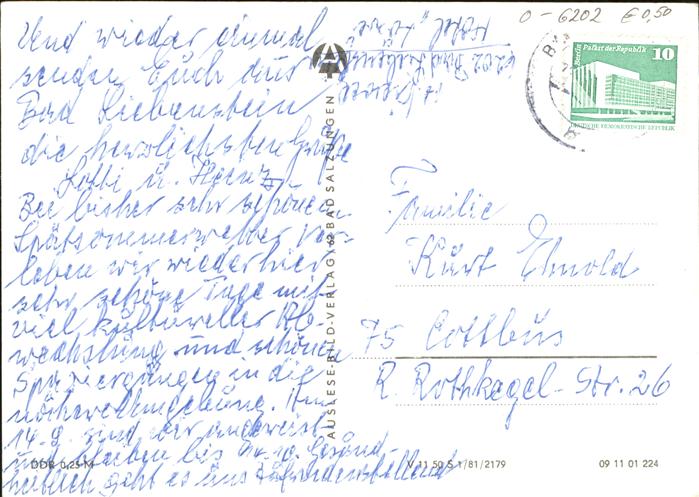 Und wieder einmal
senden Euch aus
Bad Liebenstein
die herzlichsten Grüße
Lotti u. Heinz
Bei bisher sehr schönem
Spätsommerwetter ver-
leben wir wieder hier
sehr schöne Tage mit
viel kultureller Ab-
wechslung und schönen
Spaziergängen in die
nähere Umgebung. Am
14.9. sind wir angereist
und bleiben bis
heitlich geht es uns zufriedenstellend
Hotel
6202 Bad Liebenstein
O-6202 €0,50
Berlin Palast der Republik 10
DEUTSCHE DEMOKRATISCHE REPUBLIK
Familie
Kurt Ehnold
75 Cottbus
R. Rothkegel-Str. 26
AUSLESE-BILD-VERLAG 62 BAD SALZUNGEN
DDR 0,25 M
V 11 50 S 1/81/2179
09 11 01 224